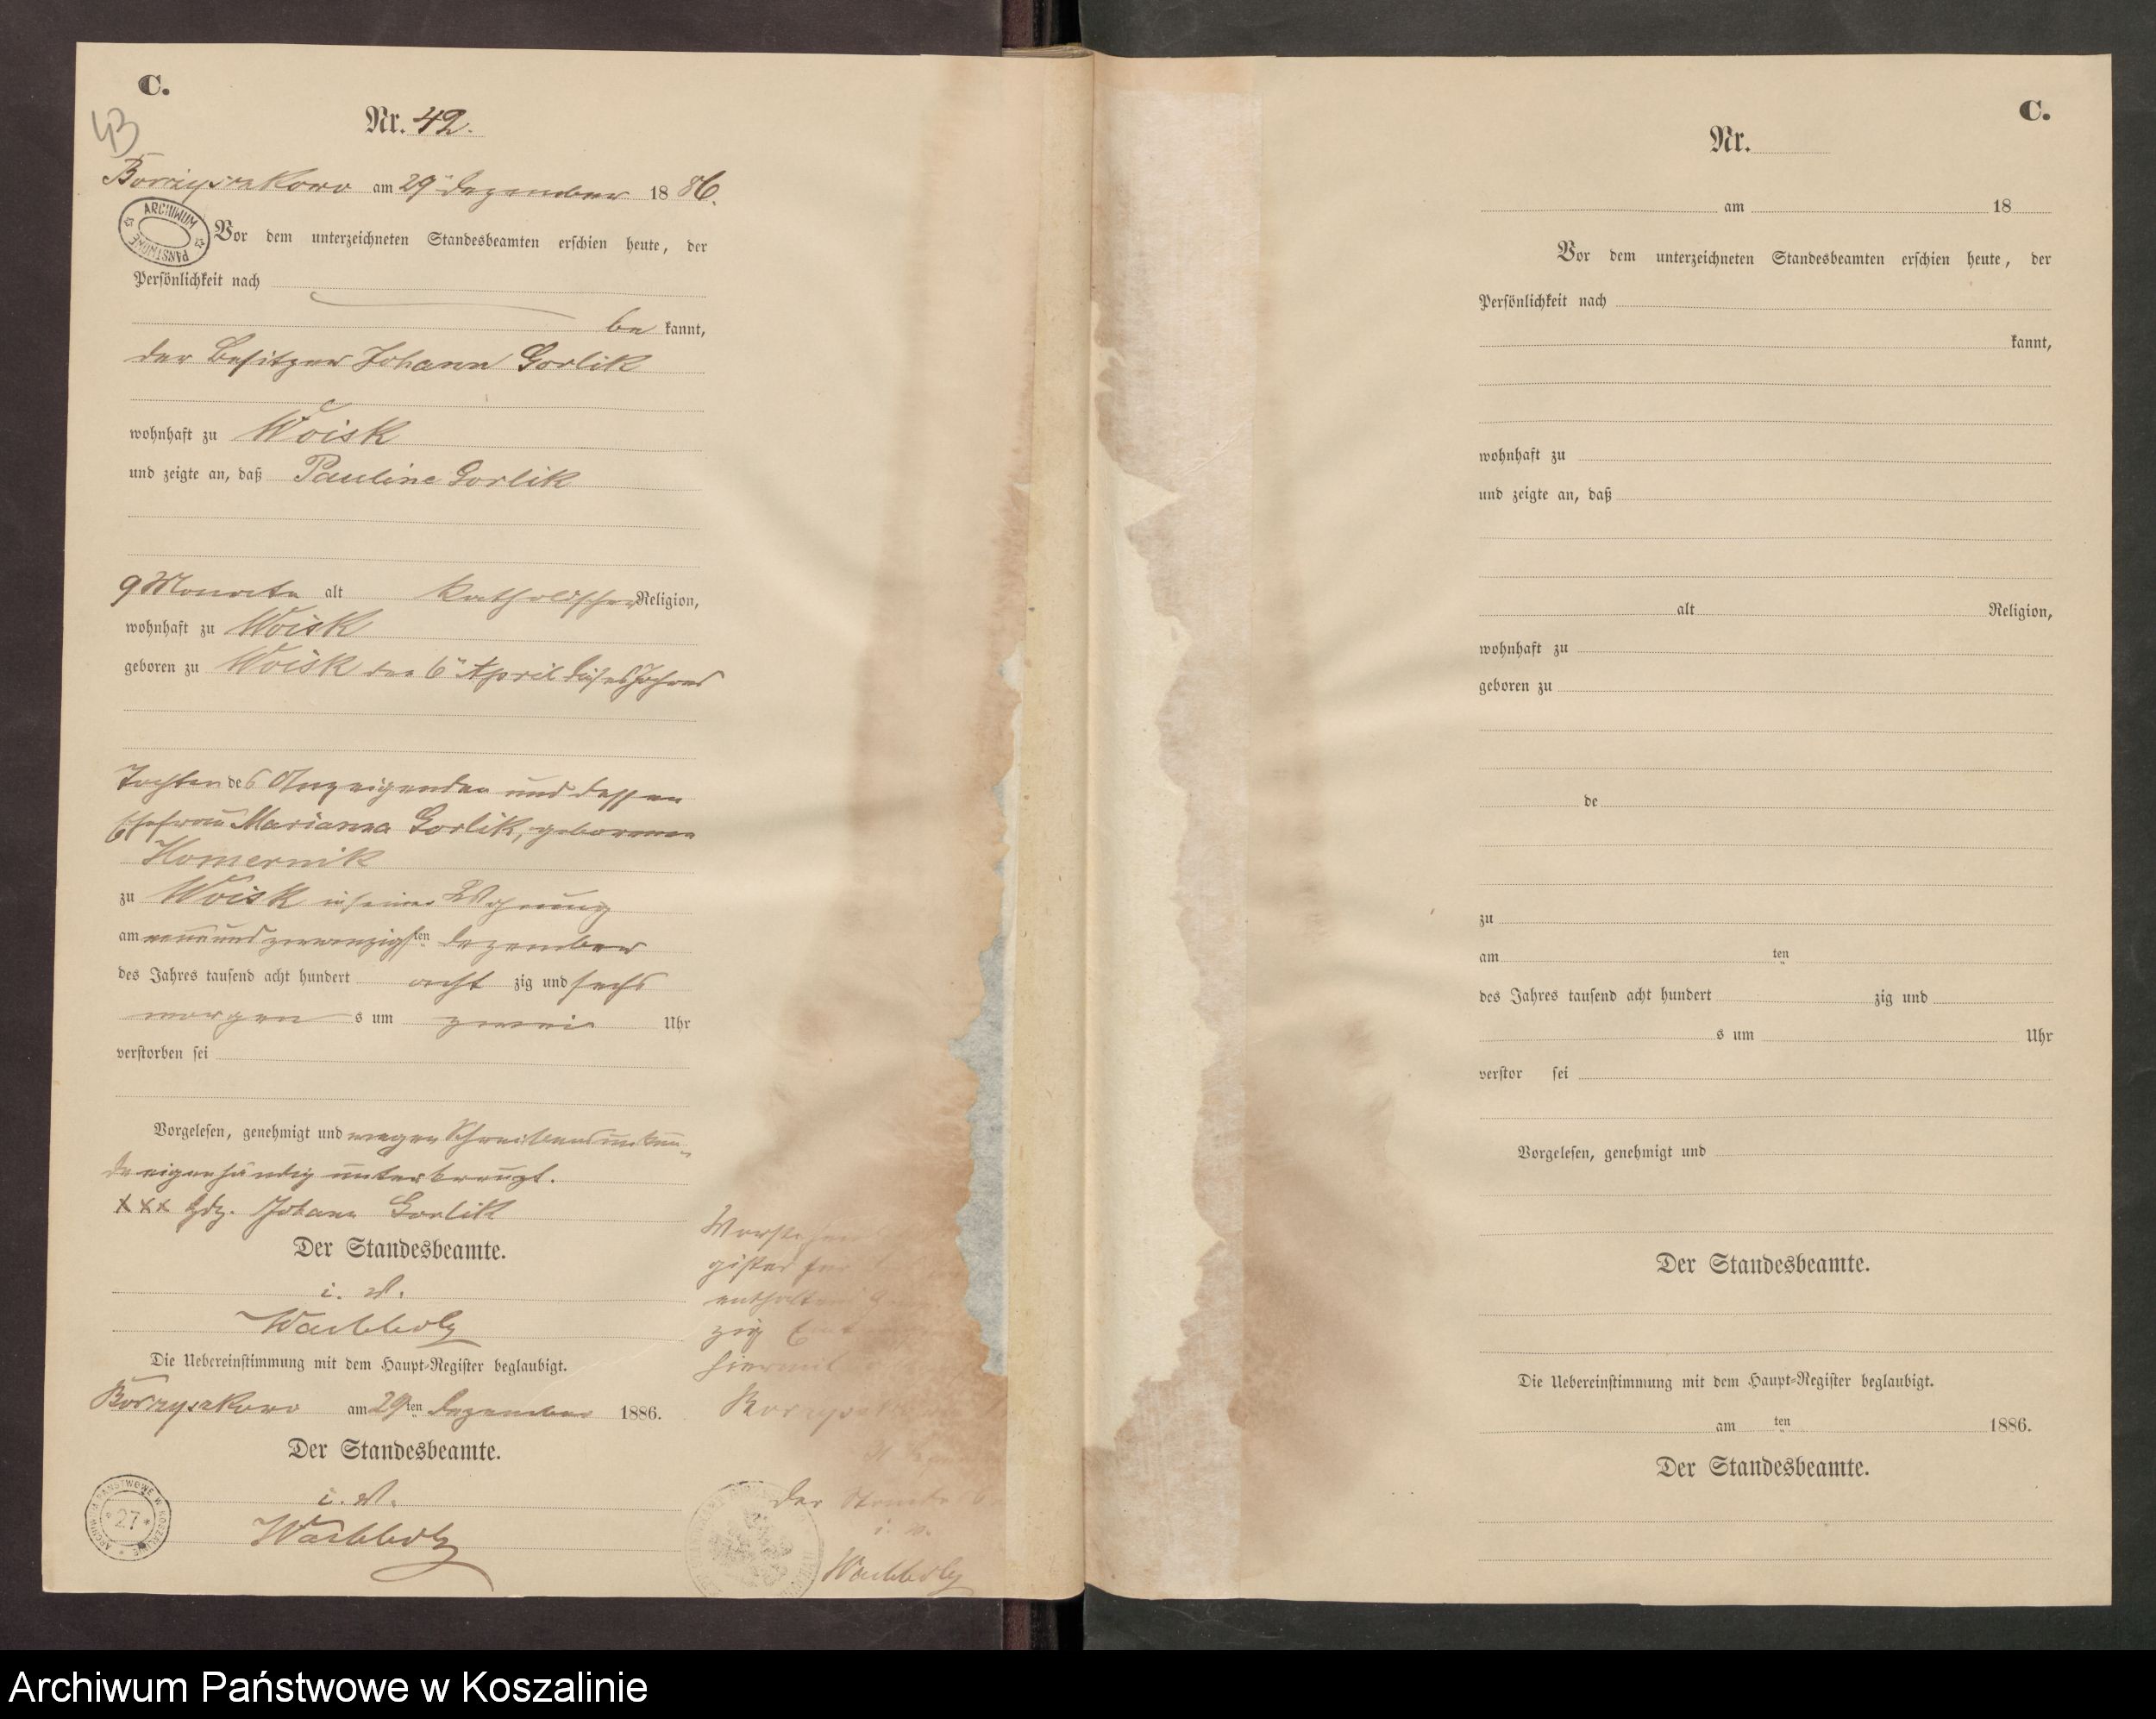 C.
43
Nr. 42.
Borzyszkowo am 29ten Dezember 18 86.
ARCHIWUM PAŃSTWOWE
Vor dem unterzeichneten Standesbeamten erschien heute, der
Persönlichkeit nach
be kannt,
der Besitzer Johann Gorlik
wohnhaft zu Woisk
und zeigte an, daß Pauline Gorlik
9 Monate alt katholischer Religion,
wohnhaft zu Woisk
geboren zu Woisk den 6ten April dieses Jahres
Tochter des Anzeigenden und dessen
Ehefrau Marianna Gorlik, geborenen
Komernik
zu Woisk in seiner Wohnung
am neunundzwanzigsten Dezember
des Jahres tausend acht hundert acht zig und sechs
morgen s um zwei Uhr
verstorben sei
Vorgelesen, genehmigt und wegen Schreibensunkun-
de eigenhändig unterkreuzt.
xxx gdz. Johann Gorlik
Der Standesbeamte.
i. V.
Wachholz
Die Uebereinstimmung mit dem Haupt-Register beglaubigt.
Borzyszkowo am 29ten Dezember 1886.
Der Standesbeamte.
i. V.
Wachholz
ARCHIWUM PAŃSTWOWE W KOSZALINIE
* 27 *
gister für
enthaltend
zig
hiermit
Der
i. V.
Wachholz
C.
Nr.
am 18
Vor dem unterzeichneten Standesbeamten erschien heute, der
Persönlichkeit nach
kannt,
wohnhaft zu
und zeigte an, daß
alt Religion,
wohnhaft zu
geboren zu
de
zu
am ten
des Jahres tausend acht hundert zig und
s um Uhr
verstor sei
Vorgelesen, genehmigt und
Der Standesbeamte.
Die Uebereinstimmung mit dem Haupt-Register beglaubigt.
am ten 1886.
Der Standesbeamte.
Archiwum Państwowe w Koszalinie